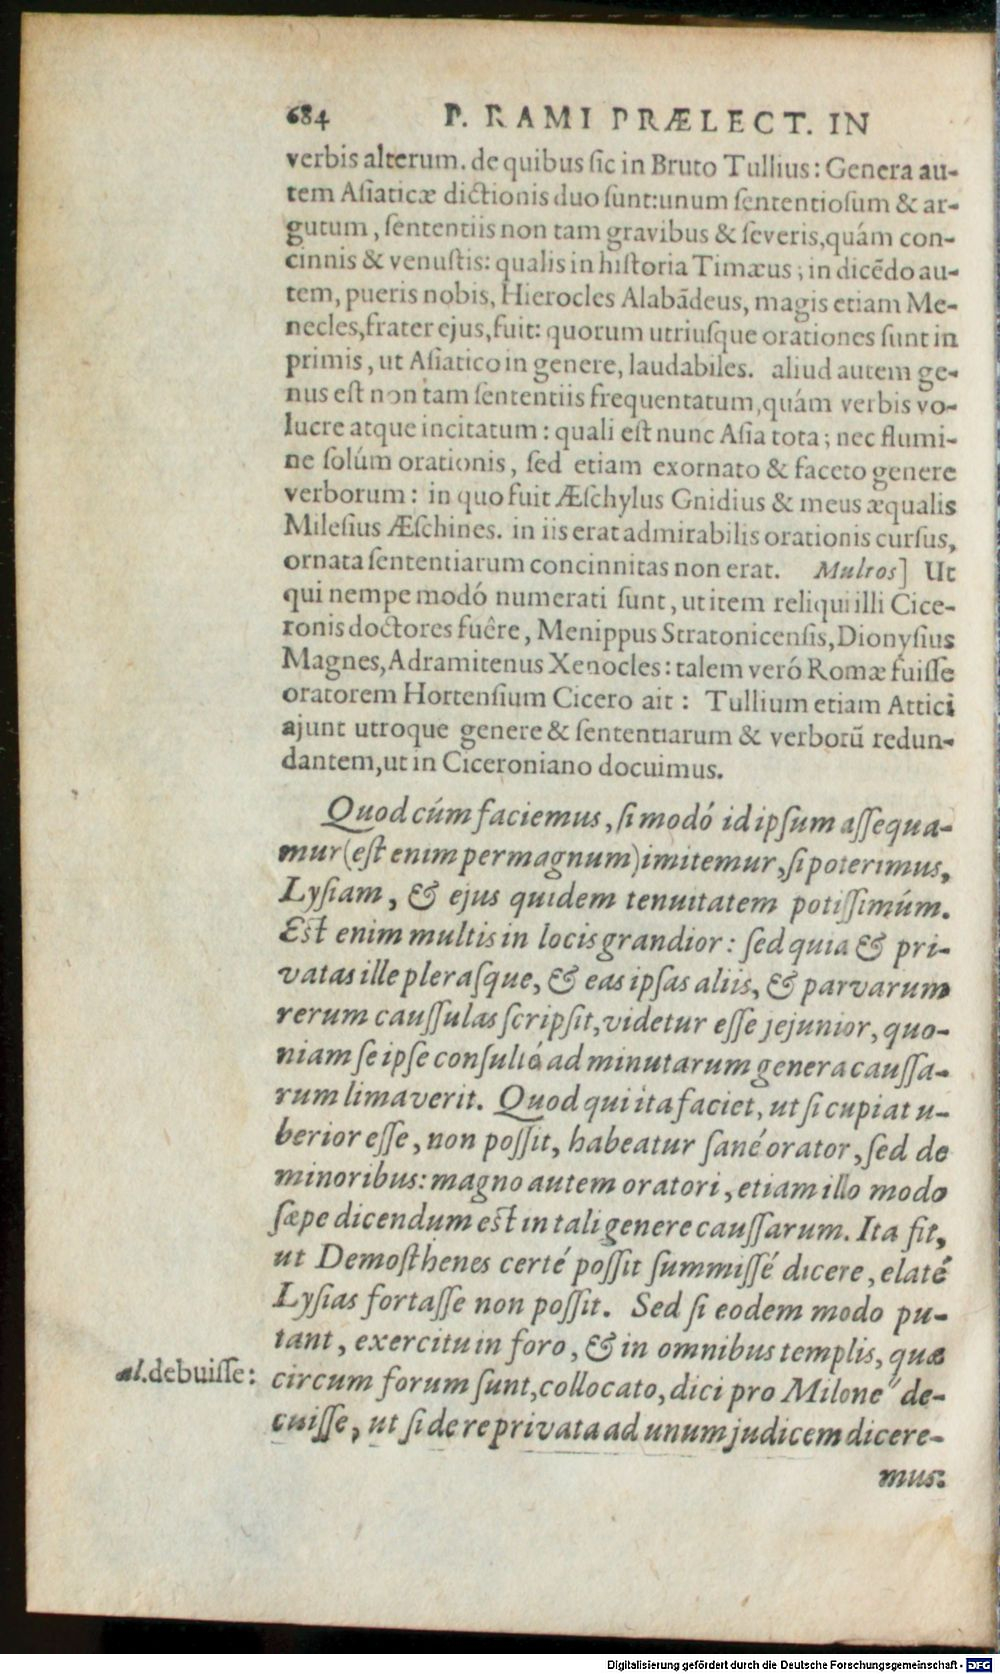 684 P. RAMI PRÆLECT. IN
verbis alterum. de quibus sic in Bruto Tullius: Genera au-
tem Asiaticæ dictionis duo sunt: unum sententiosum & ar-
gutum, sententiis non tam gravibus & severis, quám con-
cinnis & venustis: qualis in historia Timæus; in dicēdo au-
tem, pueris nobis, Hierocles Alabādeus, magis etiam Me-
necles, frater ejus, fuit: quorum utriusque orationes sunt in
primis, ut Asiatico in genere, laudabiles. aliud autem ge-
nus est non tam sententiis frequentatum, quám verbis vo-
lucre atque incitatum: quali est nunc Asia tota; nec flumi-
ne solúm orationis, sed etiam exornato & faceto genere
verborum: in quo fuit Æschylus Gnidius & meus æqualis
Milesius Æschines. in iis erat admirabilis orationis cursus,
ornata sententiarum concinnitas non erat. Multos] Ut
qui nempe modó numerati sunt, ut item reliqui illi Cice-
ronis doctores fuêre, Menippus Stratonicensis, Dionysius
Magnes, Adramitenus Xenocles: talem veró Romæ fuisse
oratorem Hortensium Cicero ait: Tullium etiam Attici
ajunt utroque genere & sententiarum & verborū redun-
dantem, ut in Ciceroniano docuimus.
Quod cúm faciemus, si modó id ipsum assequa-
mur (est enim permagnum) imitemur, si poterimus,
Lysiam, & ejus quidem tenuitatem potissimúm.
Est enim multis in locis grandior: sed quia & pri-
vatas ille plerasque, & eas ipsas aliis, & parvarum
rerum caussulas scripsit, videtur esse jejunior, quo-
niam se ipse consultó ad minutarum genera caussa-
rum limaverit. Quod qui ita faciet, ut si cupiat u-
berior esse, non possit, habeatur sané orator, sed de
minoribus: magno autem oratori, etiam illo modo
sæpe dicendum est in tali genere caussarum. Ita fit,
ut Demosthenes certé possit summissé dicere, elaté
Lysias fortasse non possit. Sed si eodem modo pu-
tant, exercitu in foro, & in omnibus templis, quæ
al. debuisse: circum forum sunt, collocato, dici pro Milone" de-
cuisse, ut si de re privata ad unum judicem dicere-
mus:
Digitalisierung gefördert durch die Deutsche Forschungsgemeinschaft - DFG